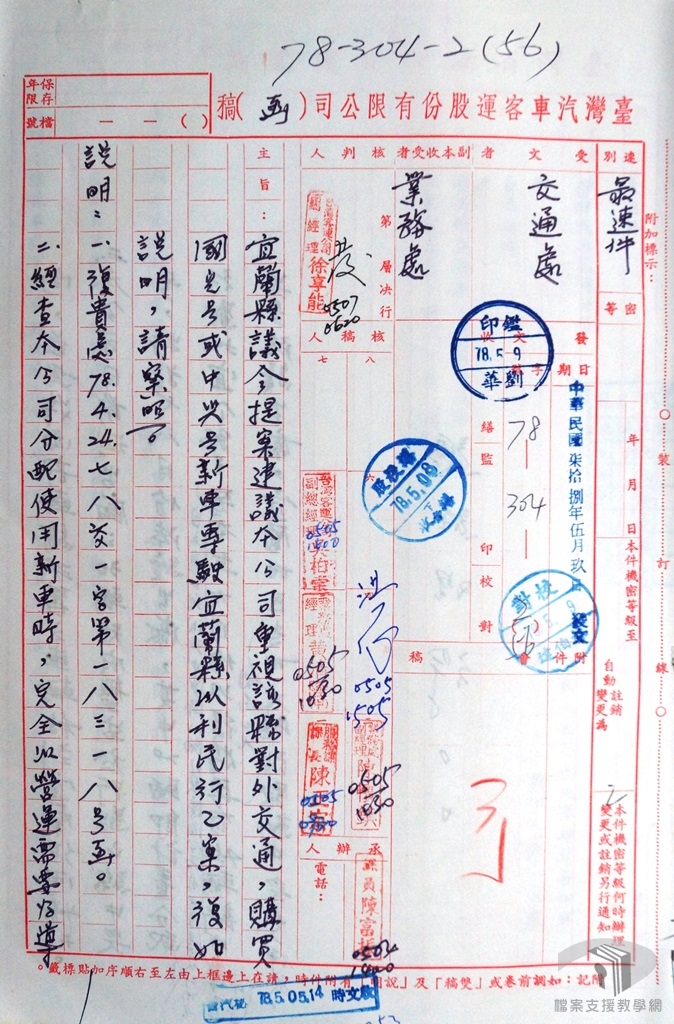 78-304-2(56)
保存年限
檔號
一 一 ( )
臺灣汽車客運股份有限公司(函)稿
附加標示：
速別
最速件
密等
年 月 日
本件機密等級至
自動註銷
變更為
本件機密等級何時辦理
變更或註銷另行通知
受文者
交通處
副本收受者
業務處
發文
日期
中華民國柒拾捌年伍月玖日 發文
字
78-304-
附件
鑑印
78.5.9
劉華
繕
監印
校對
校對
第一層決行
核判人
徐享能
發
0507
0620
核稿人
七
八
六
78.5.08
副總經理
0505
1400
經理
0505
1030
0505
1505
0505
1030
課長
陳
稿
承辦人
課員陳富
0504
1400
電話：
主旨：宜蘭縣議會提案建議本公司重視該縣對外交通，購買
國光号或中兴号新車專駛宜蘭縣以利民行乙案，復如
說明，請察照。
說明：一、復貴處78.4.24.七八交一字第一八三一八号函。
二、經查本公司分配使用新車時，完全以營運需要為導
裝 訂 線
附記：如調前卷或「雙稿」及「會附」有附件時，請在上邊上框由左至右順序加貼標籤。
78.5.05.14
檔案支援教學網